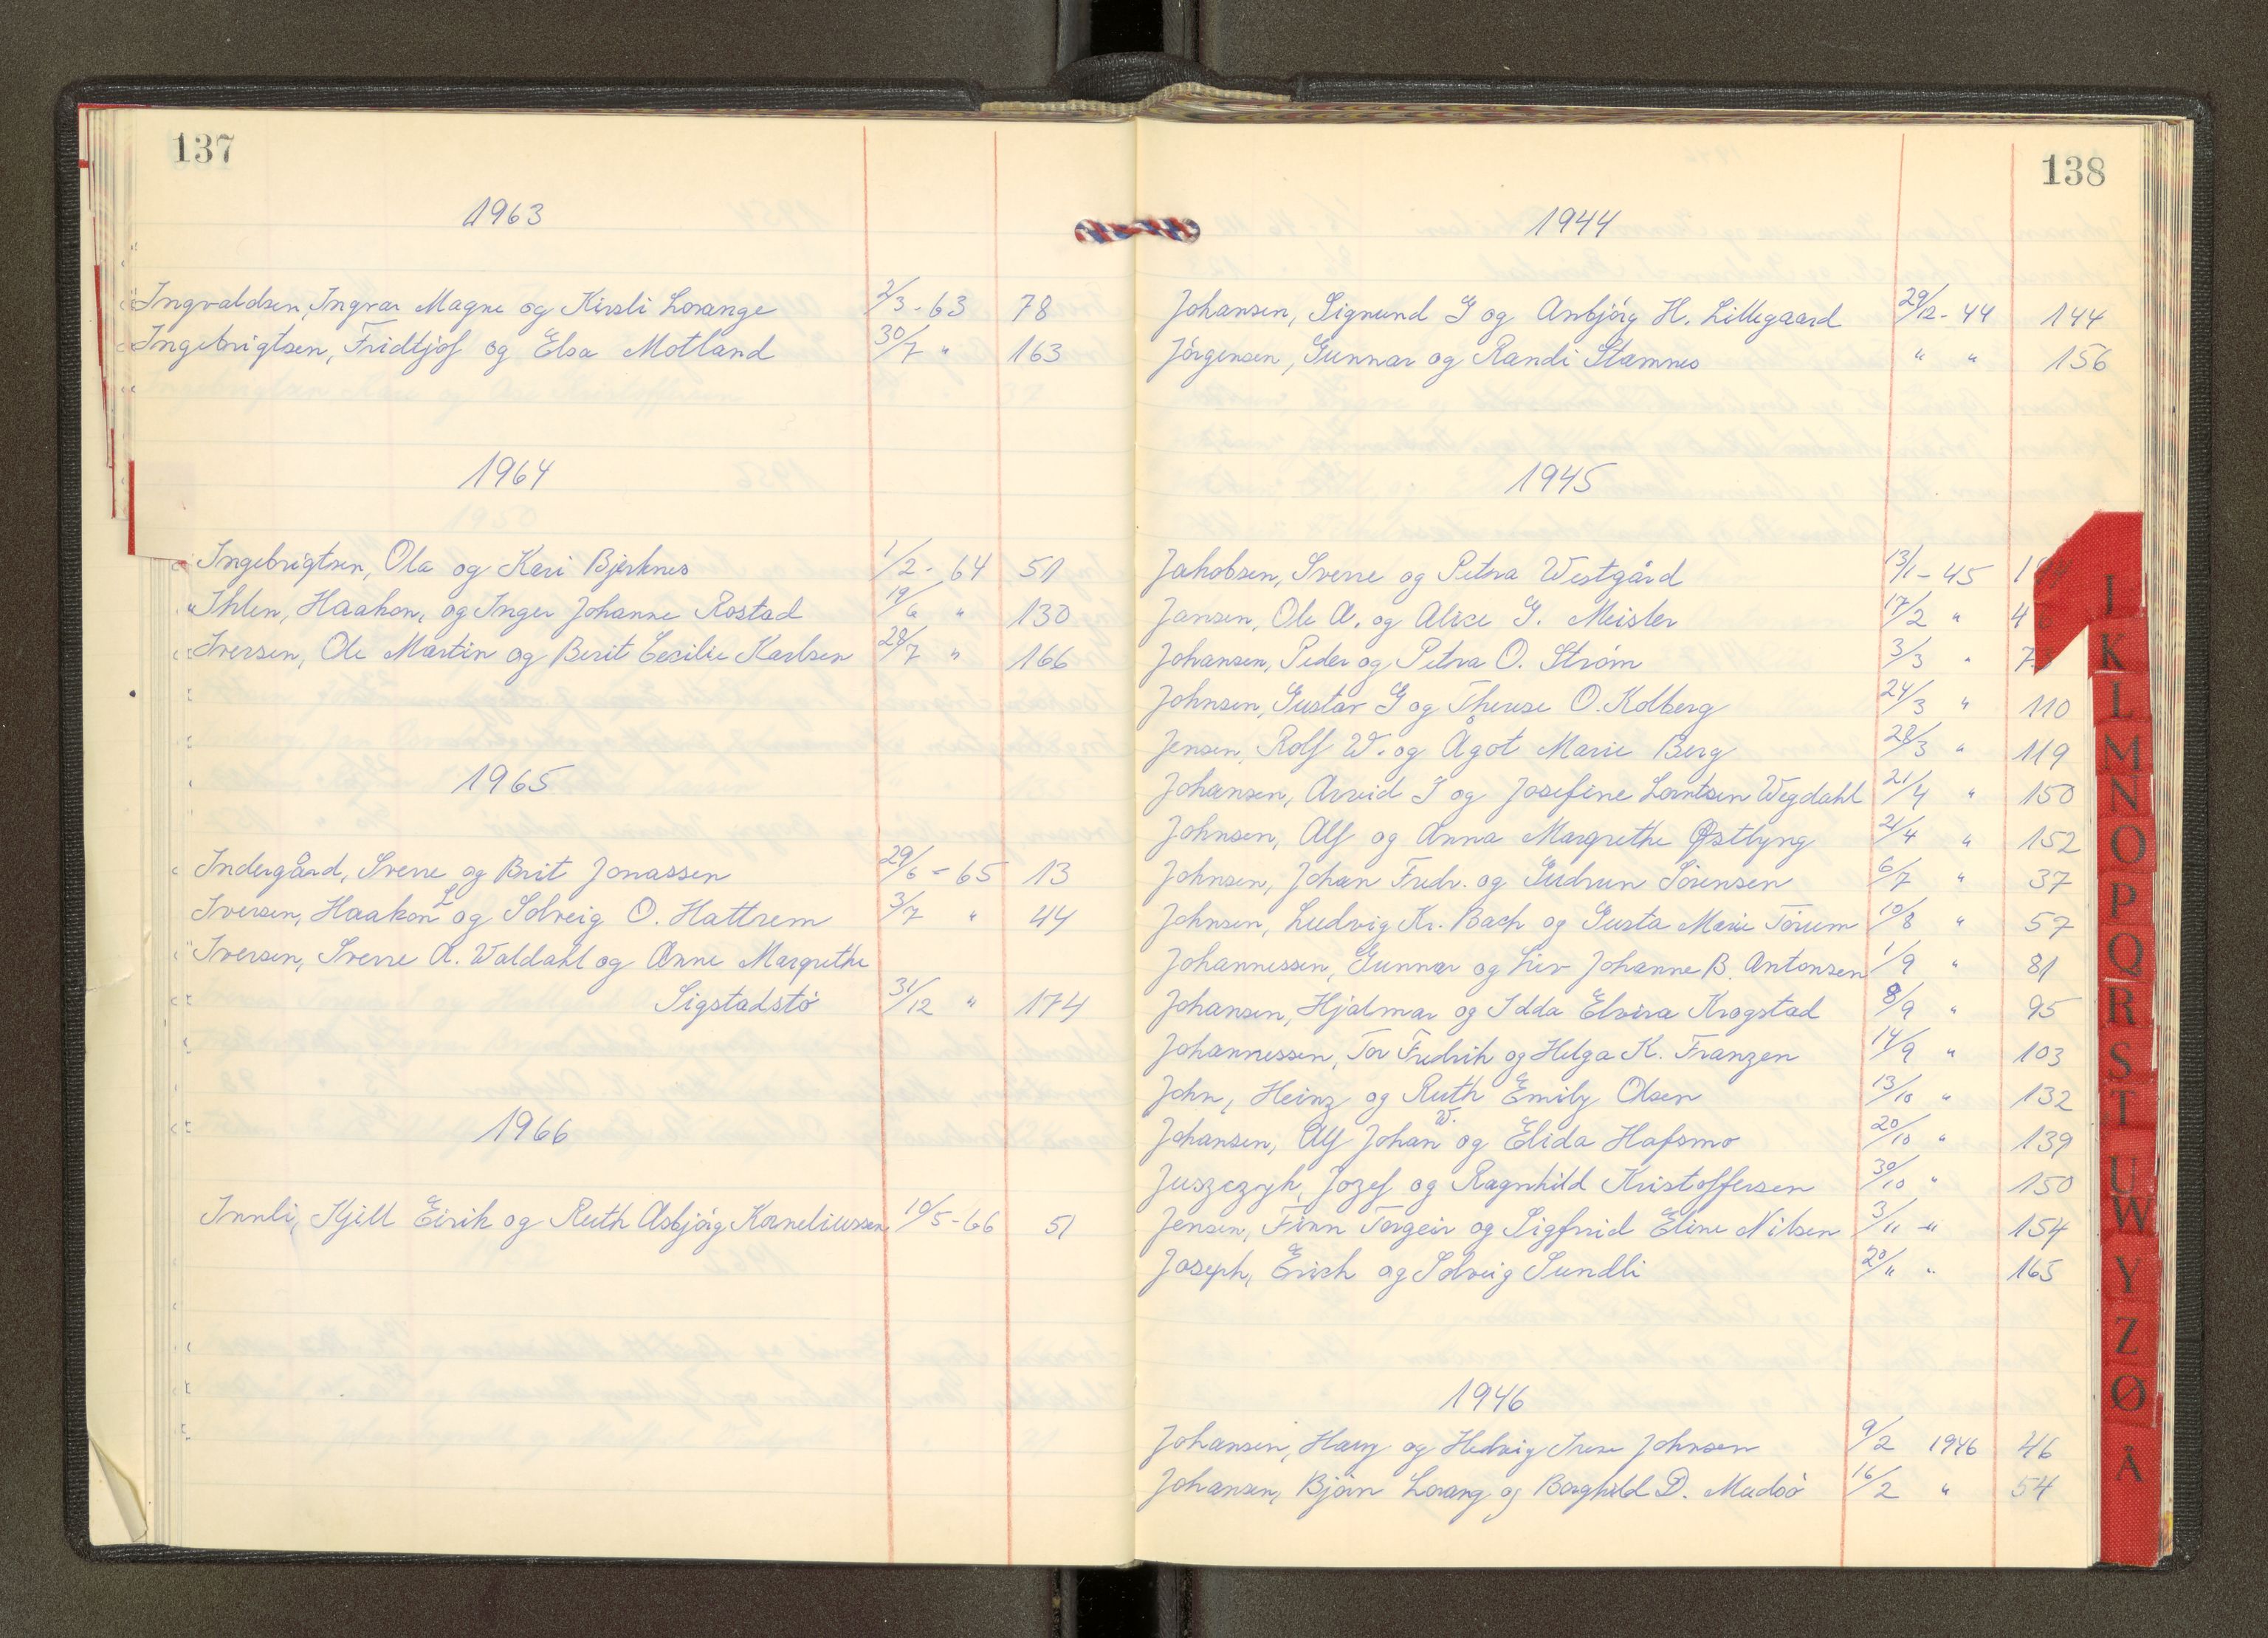 137
1963
Ingvaldsen, Ingvar Magne og Kirsti Lorange 2/3 - 63 78
Ingebrigtsen, Fridtjof og Elsa Motland 30/7 " 163
1964
Ingebrigtsen, Ola og Kari Bjerknes 1/2 - 64 51
Ihlen, Haakon, og Inger Johanne Rostad 19/6 " 130
Iversen, Ole Martin og Berit Cecilie Karlsen 28/7 " 166
1965
Indergård, Sverre og Brit Jonassen 29/6 - 65 13
Iversen, Haakon L og Solveig O. Hattrem 3/7 " 44
Iversen, Sverre A. Waldahl og Anne Margrethe
Sigstadstø 31/12 " 174
1966
Innli, Kjell Eirik og Ruth Asbjørg Korneliussen 10/5 - 66 51
138
1944
Johansen, Sigmund G og Asbjørg H. Lillegaard 29/12 - 44 144
Jørgensen, Gunnar og Randi Stamnes " " 156
1945
Jakobsen, Sverre og Petra Westgård 13/1 - 45
Jansen, Ole A. og Alice G. Meisler 17/2 " 4
Johansen, Peder og Petra O. Strøm 3/3 " 7
Johnsen, Gustav G og Therese O. Kolberg 24/3 " 110
Jensen, Rolf W. og Ågot Marie Berg 28/3 " 119
Johansen, Arvid I og Josefine Lorntsen Wegdahl 21/4 " 150
Johnsen, Alf og Anna Margrethe Østbyng 21/4 " 152
Johnsen, Johan Fredr. og Gudrun Sørensen 6/7 " 37
Johnsen, Ludvig Kr. Bach og Gusta Marie Tørum 10/8 " 57
Johannessen, Gunnar og Liv Johanne B. Antonsen 1/9 " 81
Johansen, Hjalmar og Idda Elvira Krogstad 8/9 " 95
Johannessen, Tor Fredrik og Helga K. Franzen 14/9 " 103
John, Heinz og Ruth Emily Olsen 13/10 " 132
Johansen, Alf Johan W. og Elida Hafsmo 20/10 " 139
Juszczyk, Jozef og Ragnhild Kristoffersen 30/10 " 150
Jensen, Finn Torgeir og Sigfrid Eline Nilsen 3/11 " 154
Joseph, Erich og Solveig Sundli 20/11 " 165
1946
Johansen, Harry og Hedvig Irene Johnsen 9/2 1946 46
Johansen, Bjørn Lorang og Borghild D. Madsø 16/2 " 54
I
K
L
M
N
O
P
Q
R
S
T
U
W
Y
Z
Ø
Å